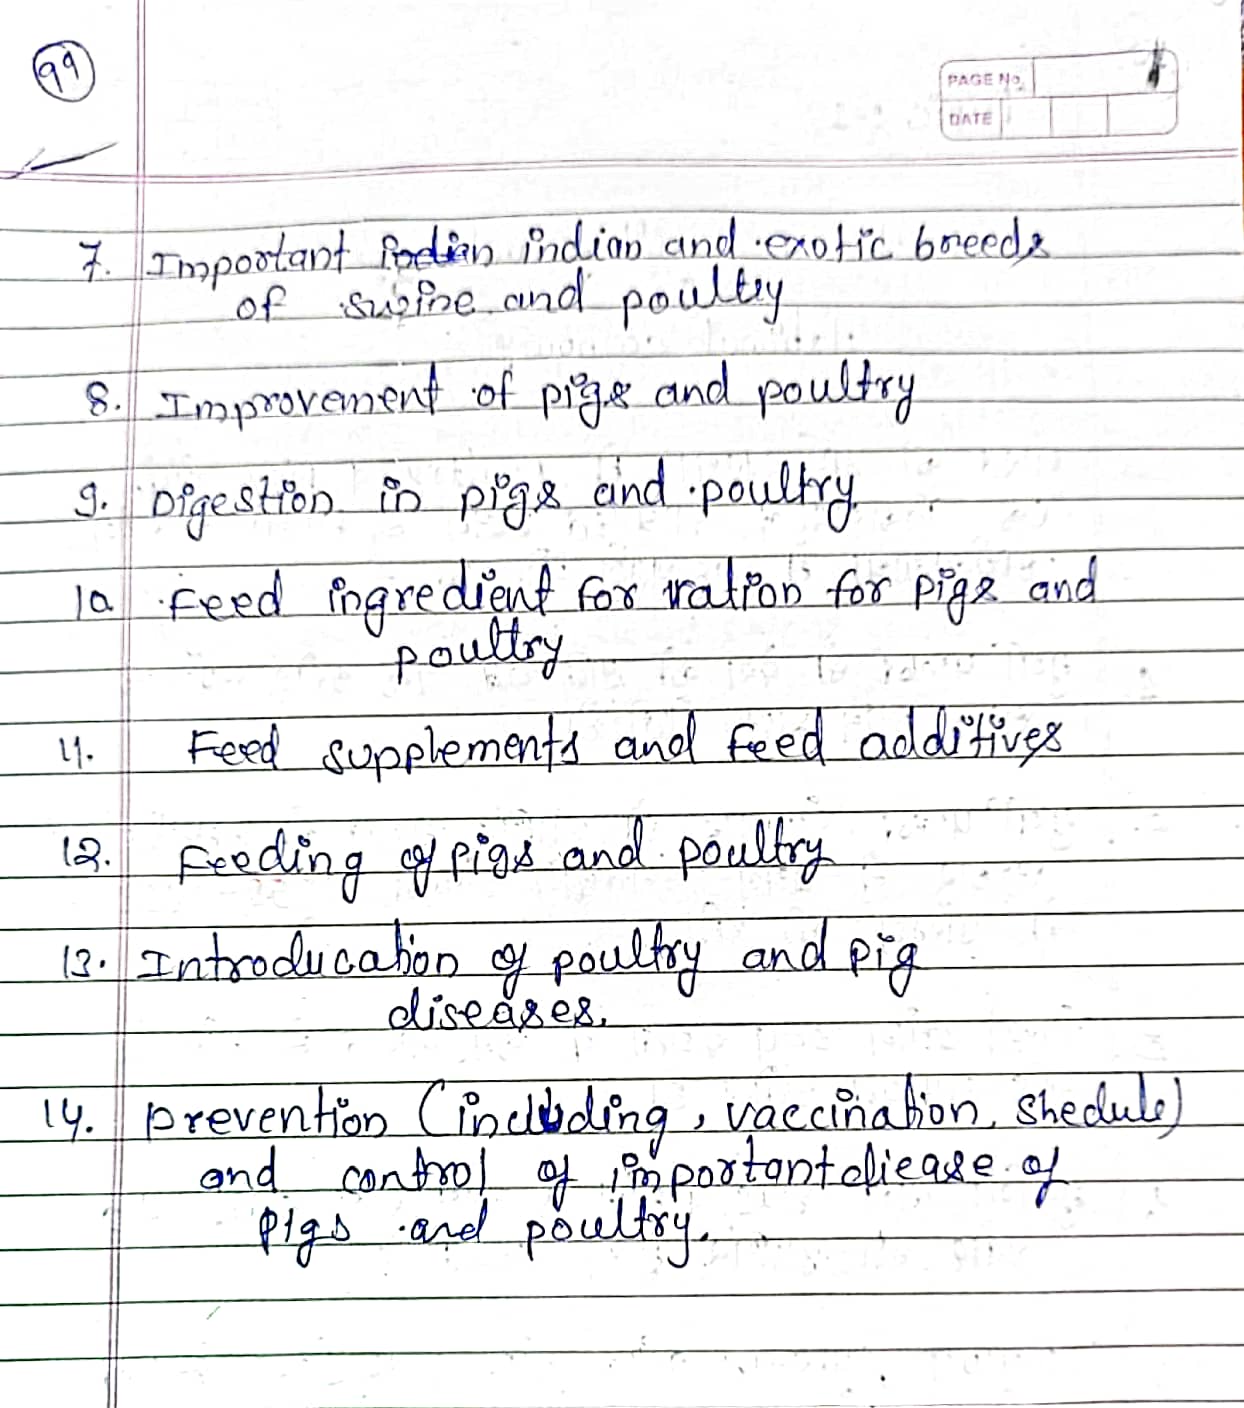 99
PAGE No.
DATE
7. Important indian indian and exotic breeds
of swine and poultry
8. Improvement of pigs and poultry
9. Digestion in pigs and poultry
10 Feed ingredient for ration for pigs and
poultry
11. Feed supplements and feed additives
12. Feeding of pigs and poultry
13. Introducation of poultry and pig
diseases.
14. prevention (including, vaccination, shedule)
and control of important diease of
pigs and poultry.